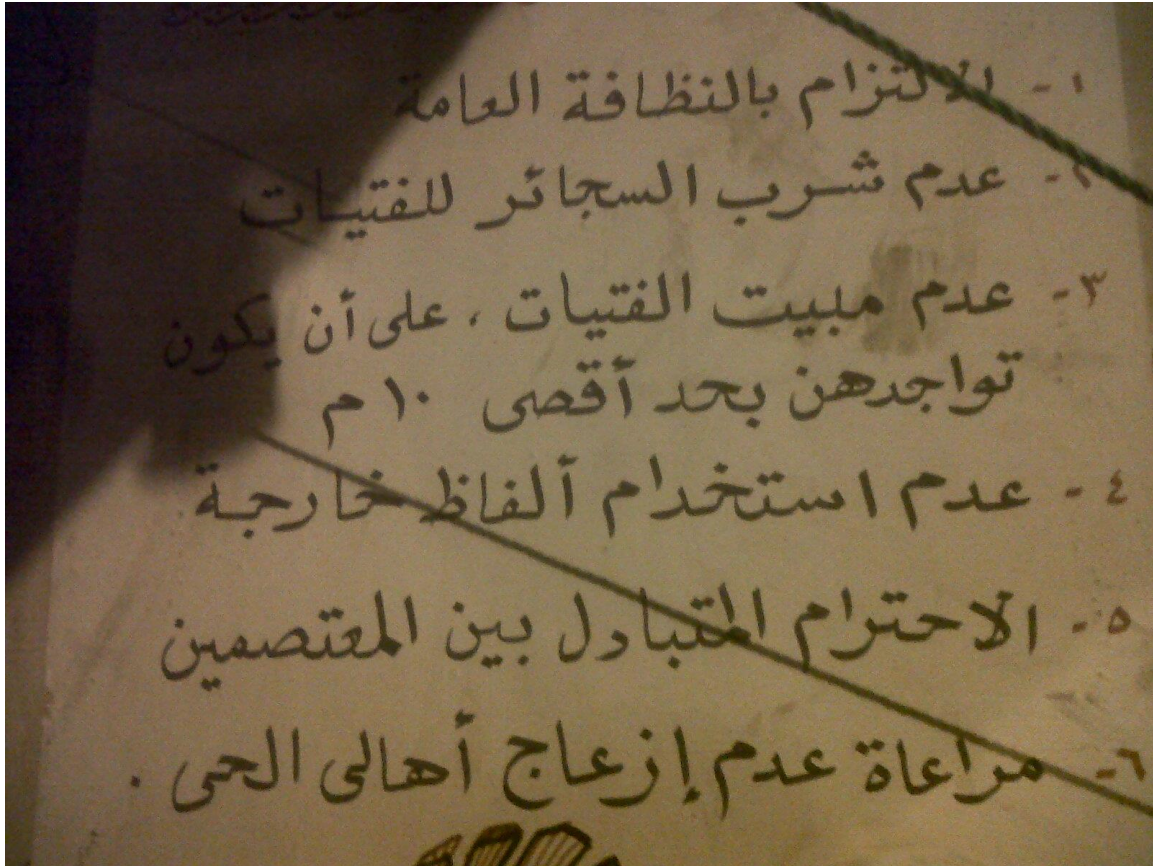 ١- الالتزام بالنظافة العامة
٢- عدم شرب السجائر للفتيات
٣- عدم مبيت الفتيات ، على أن يكون
تواجدهن بحد أقصى ١٠ م
٤- عدم استخدام ألفاظ خارجة
٥- الاحترام المتبادل بين المعتصمين
٦- مراعاة عدم إزعاج أهالى الحى .